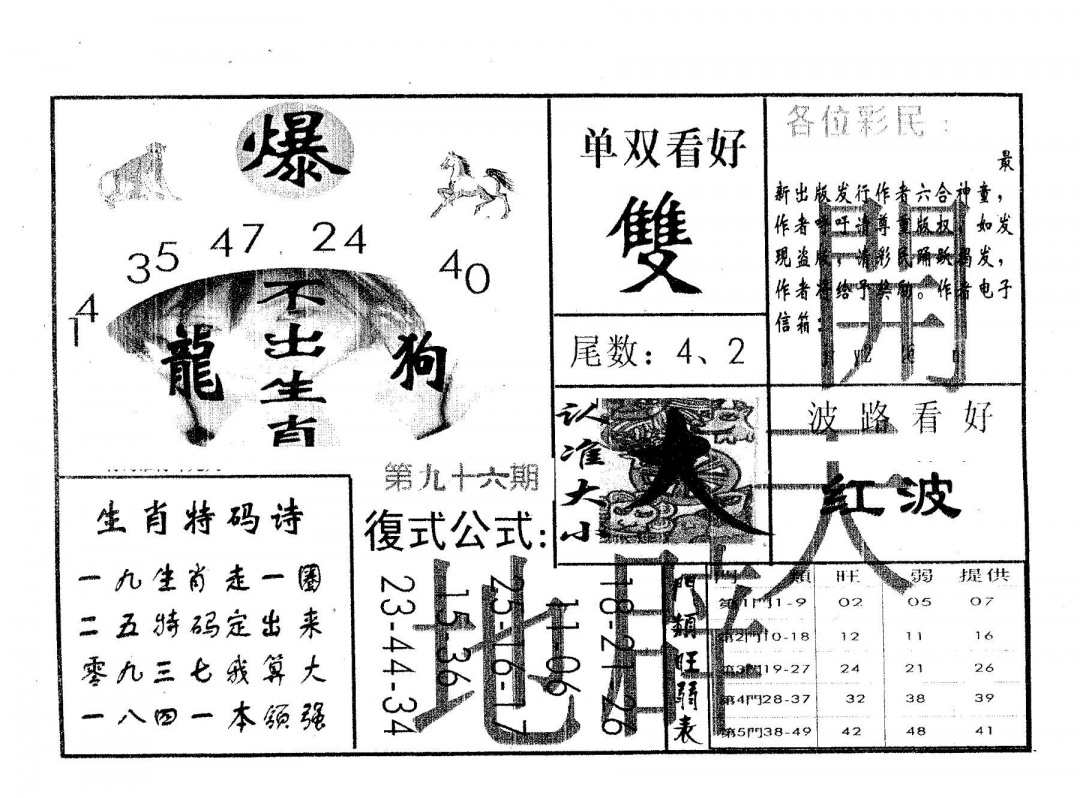 爆
14
35
47
24
40
龍
不出生肖
狗
单双看好
雙
尾数：4、2
各位彩民：
最
新出版发行作者六合神童，
作者呼吁请尊重版权，如发
现盗版，请彩民踊跃揭发，
作者将给予奖励。作者电子
信箱：
開
天
地
认准大小
大
波路看好
红波
第九十六期
復式公式：
23-44-34
15-36
25-16-17
11-06
18-21-26
生肖特码诗
一九生肖走一圈
二五特码定出来
零九三七我算大
一八四一本领强
門類旺弱表
門 類 旺 弱 提供
第1門1-9 02 05 07
第2門10-18 12 11 16
第3門19-27 24 21 26
第4門28-37 32 38 39
第5門38-49 42 48 41